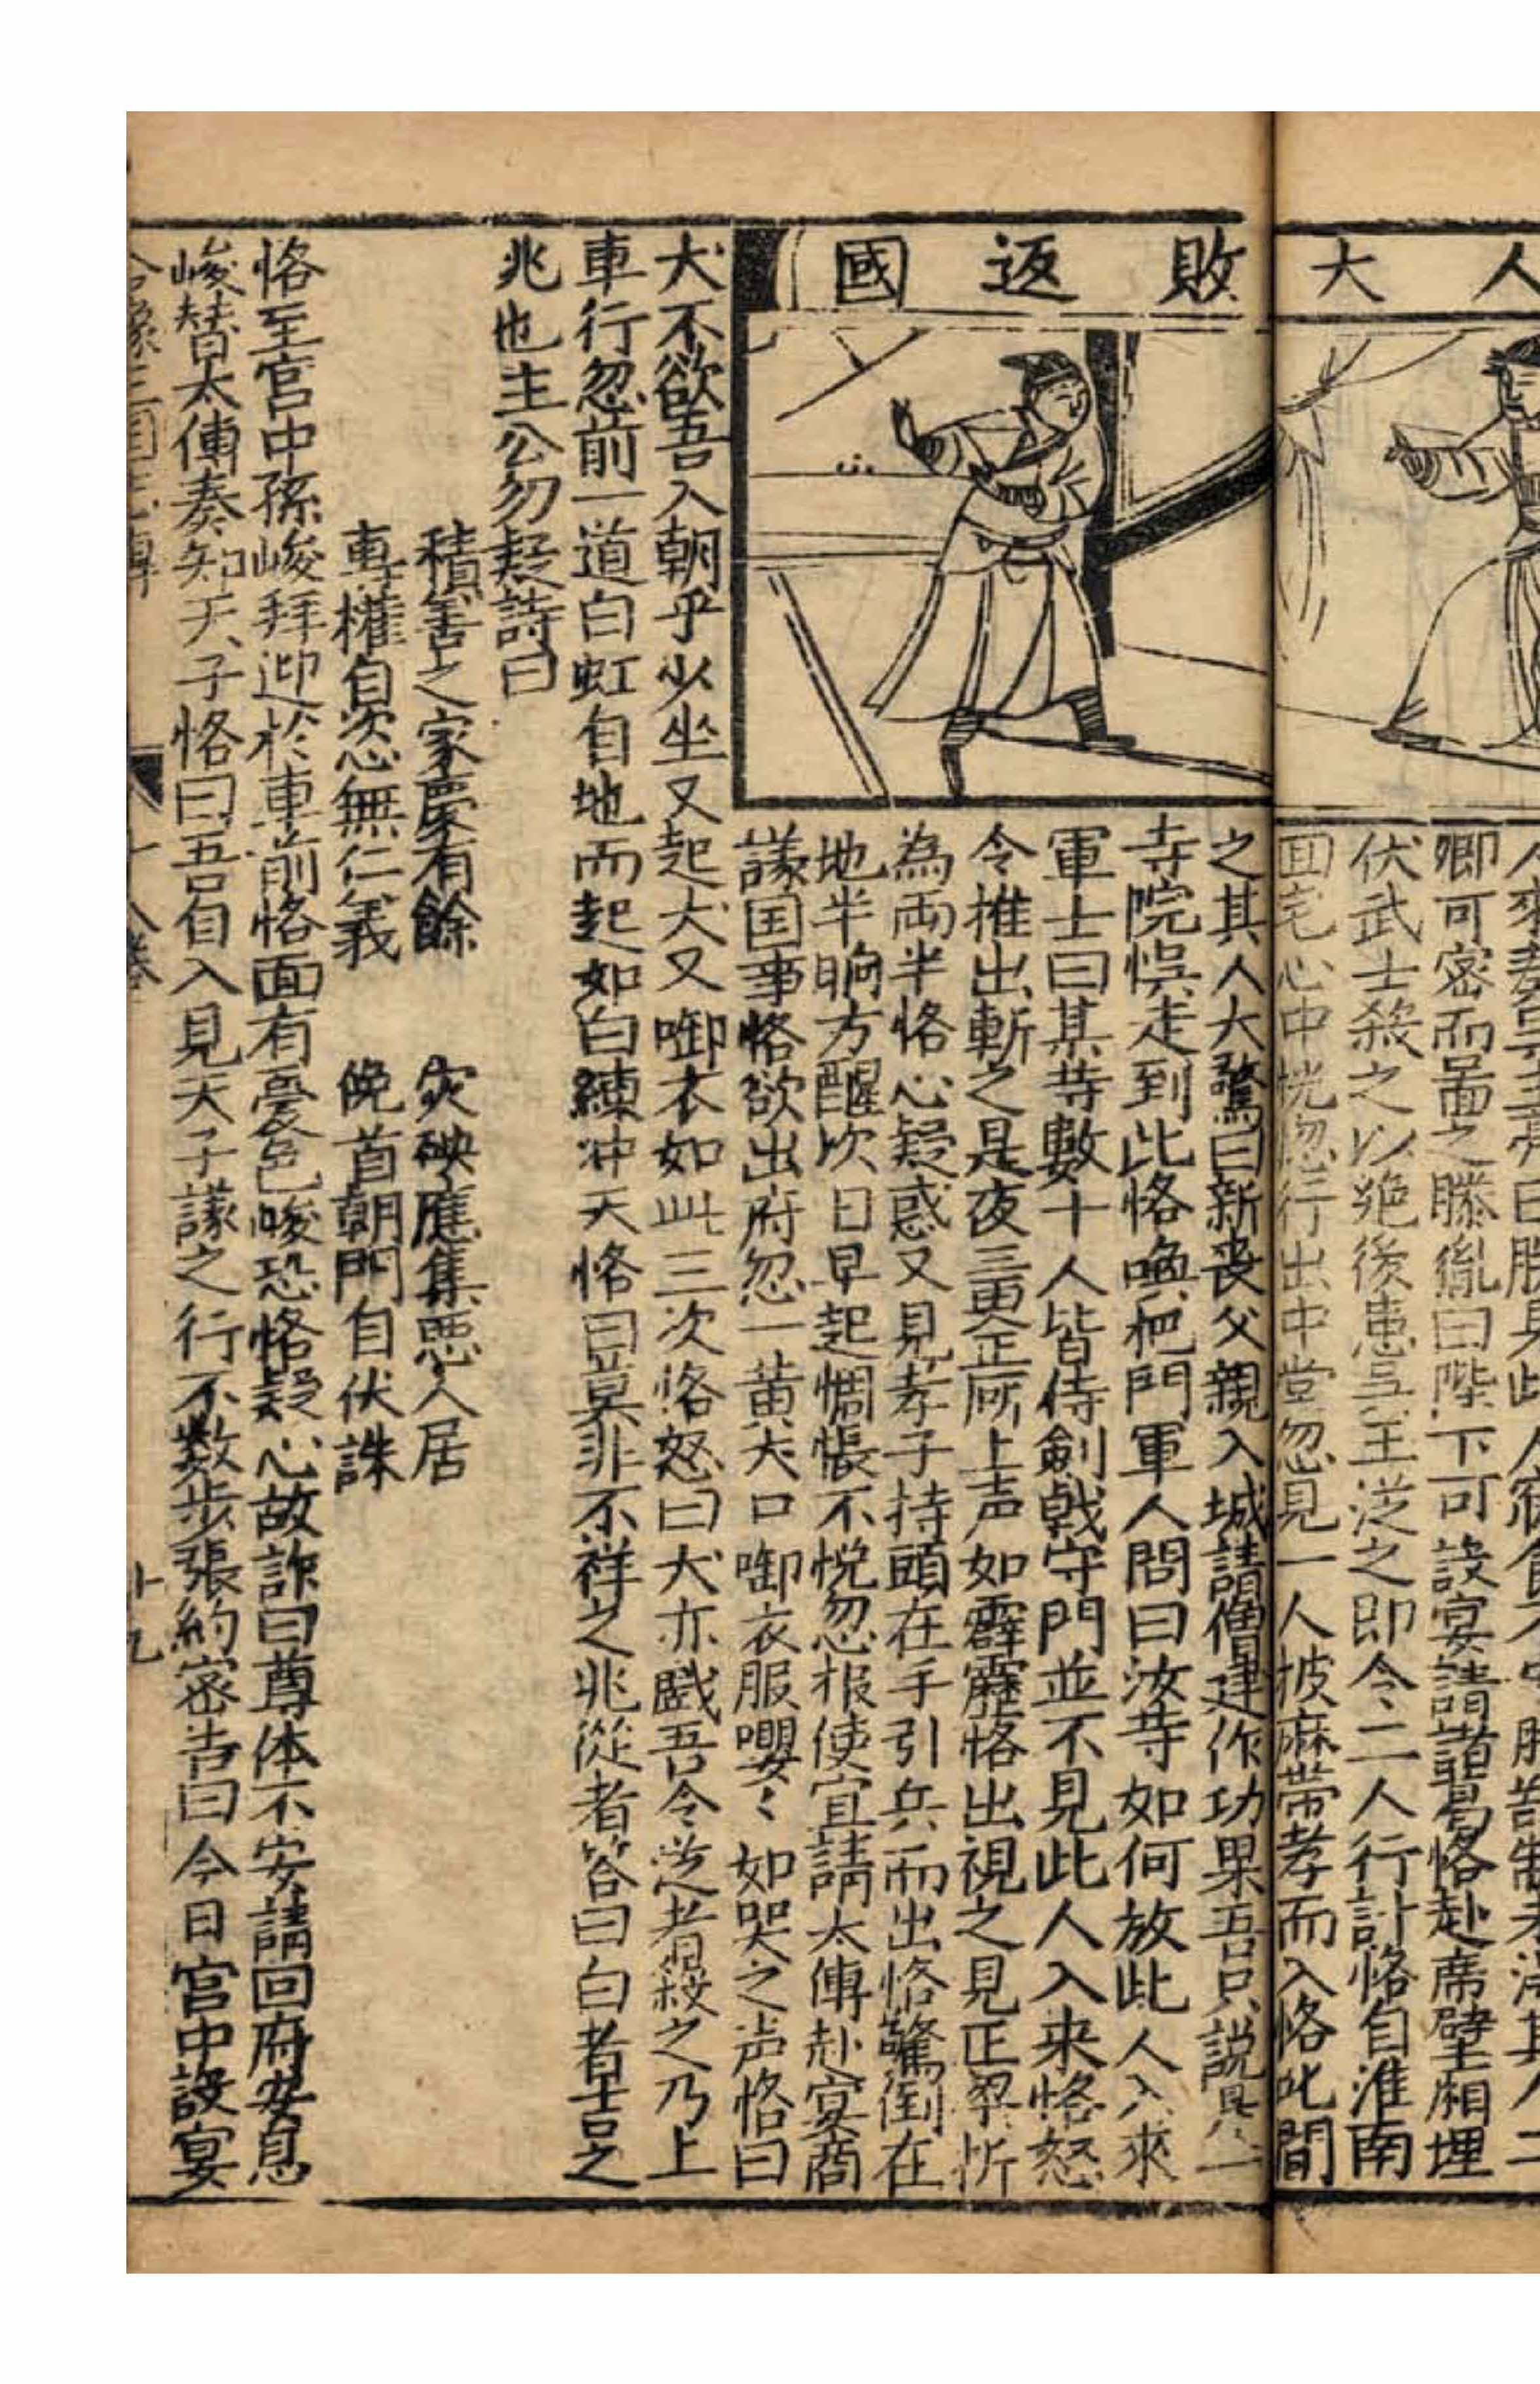 人大敗返國
卿可密而啚之滕胤曰陛下可設宴請諸葛恪赴席壁廂埋
伏武士殺之以絶後患吳王從之即令二人行計恪自淮南
囬宅心中恍忽行出中堂忽見一人披麻帶孝而入恪叱問
之其人大驚曰新喪父親入城請僧建作功果吾只說是
寺院悞走到此恪喚把門軍人問曰汝等如何放此人入來
軍士曰某等數十人皆侍劍戟守門並不見此人入来恪怒
令推出斬之是夜三更正㕔上声如霹靂恪出視之見正梁忻
為兩半恪心疑惑又見孝子持頭在手引兵而出恪驚倒在
地半晌方醒次日早起惆悵不悦忽报使宜請太傅赴宴商
議国事恪欲出府忽一黄犬口啣衣服嚶〻如哭之声恪曰
犬不欲吾入朝乎少坐又起犬又啣衣如此三次恪怒曰犬亦戯吾令从者殺之乃上
車行忽前一道白虹自地而起如白練冲天恪曰莫非不祥之兆從者答曰白者吉之
兆也主公勿疑詩曰
積善之家慶有餘 灾殃應集惡人居
專權自恣無仁義 俛首朝門自伏誅
恪至宫中孫峻拜迎於車前恪面有憂色峻恐恪疑心故詐曰尊体不安請回府安息
峻替太傅奏知天子恪曰吾自入見天子議之行不数步張約密告曰今日宫中設宴